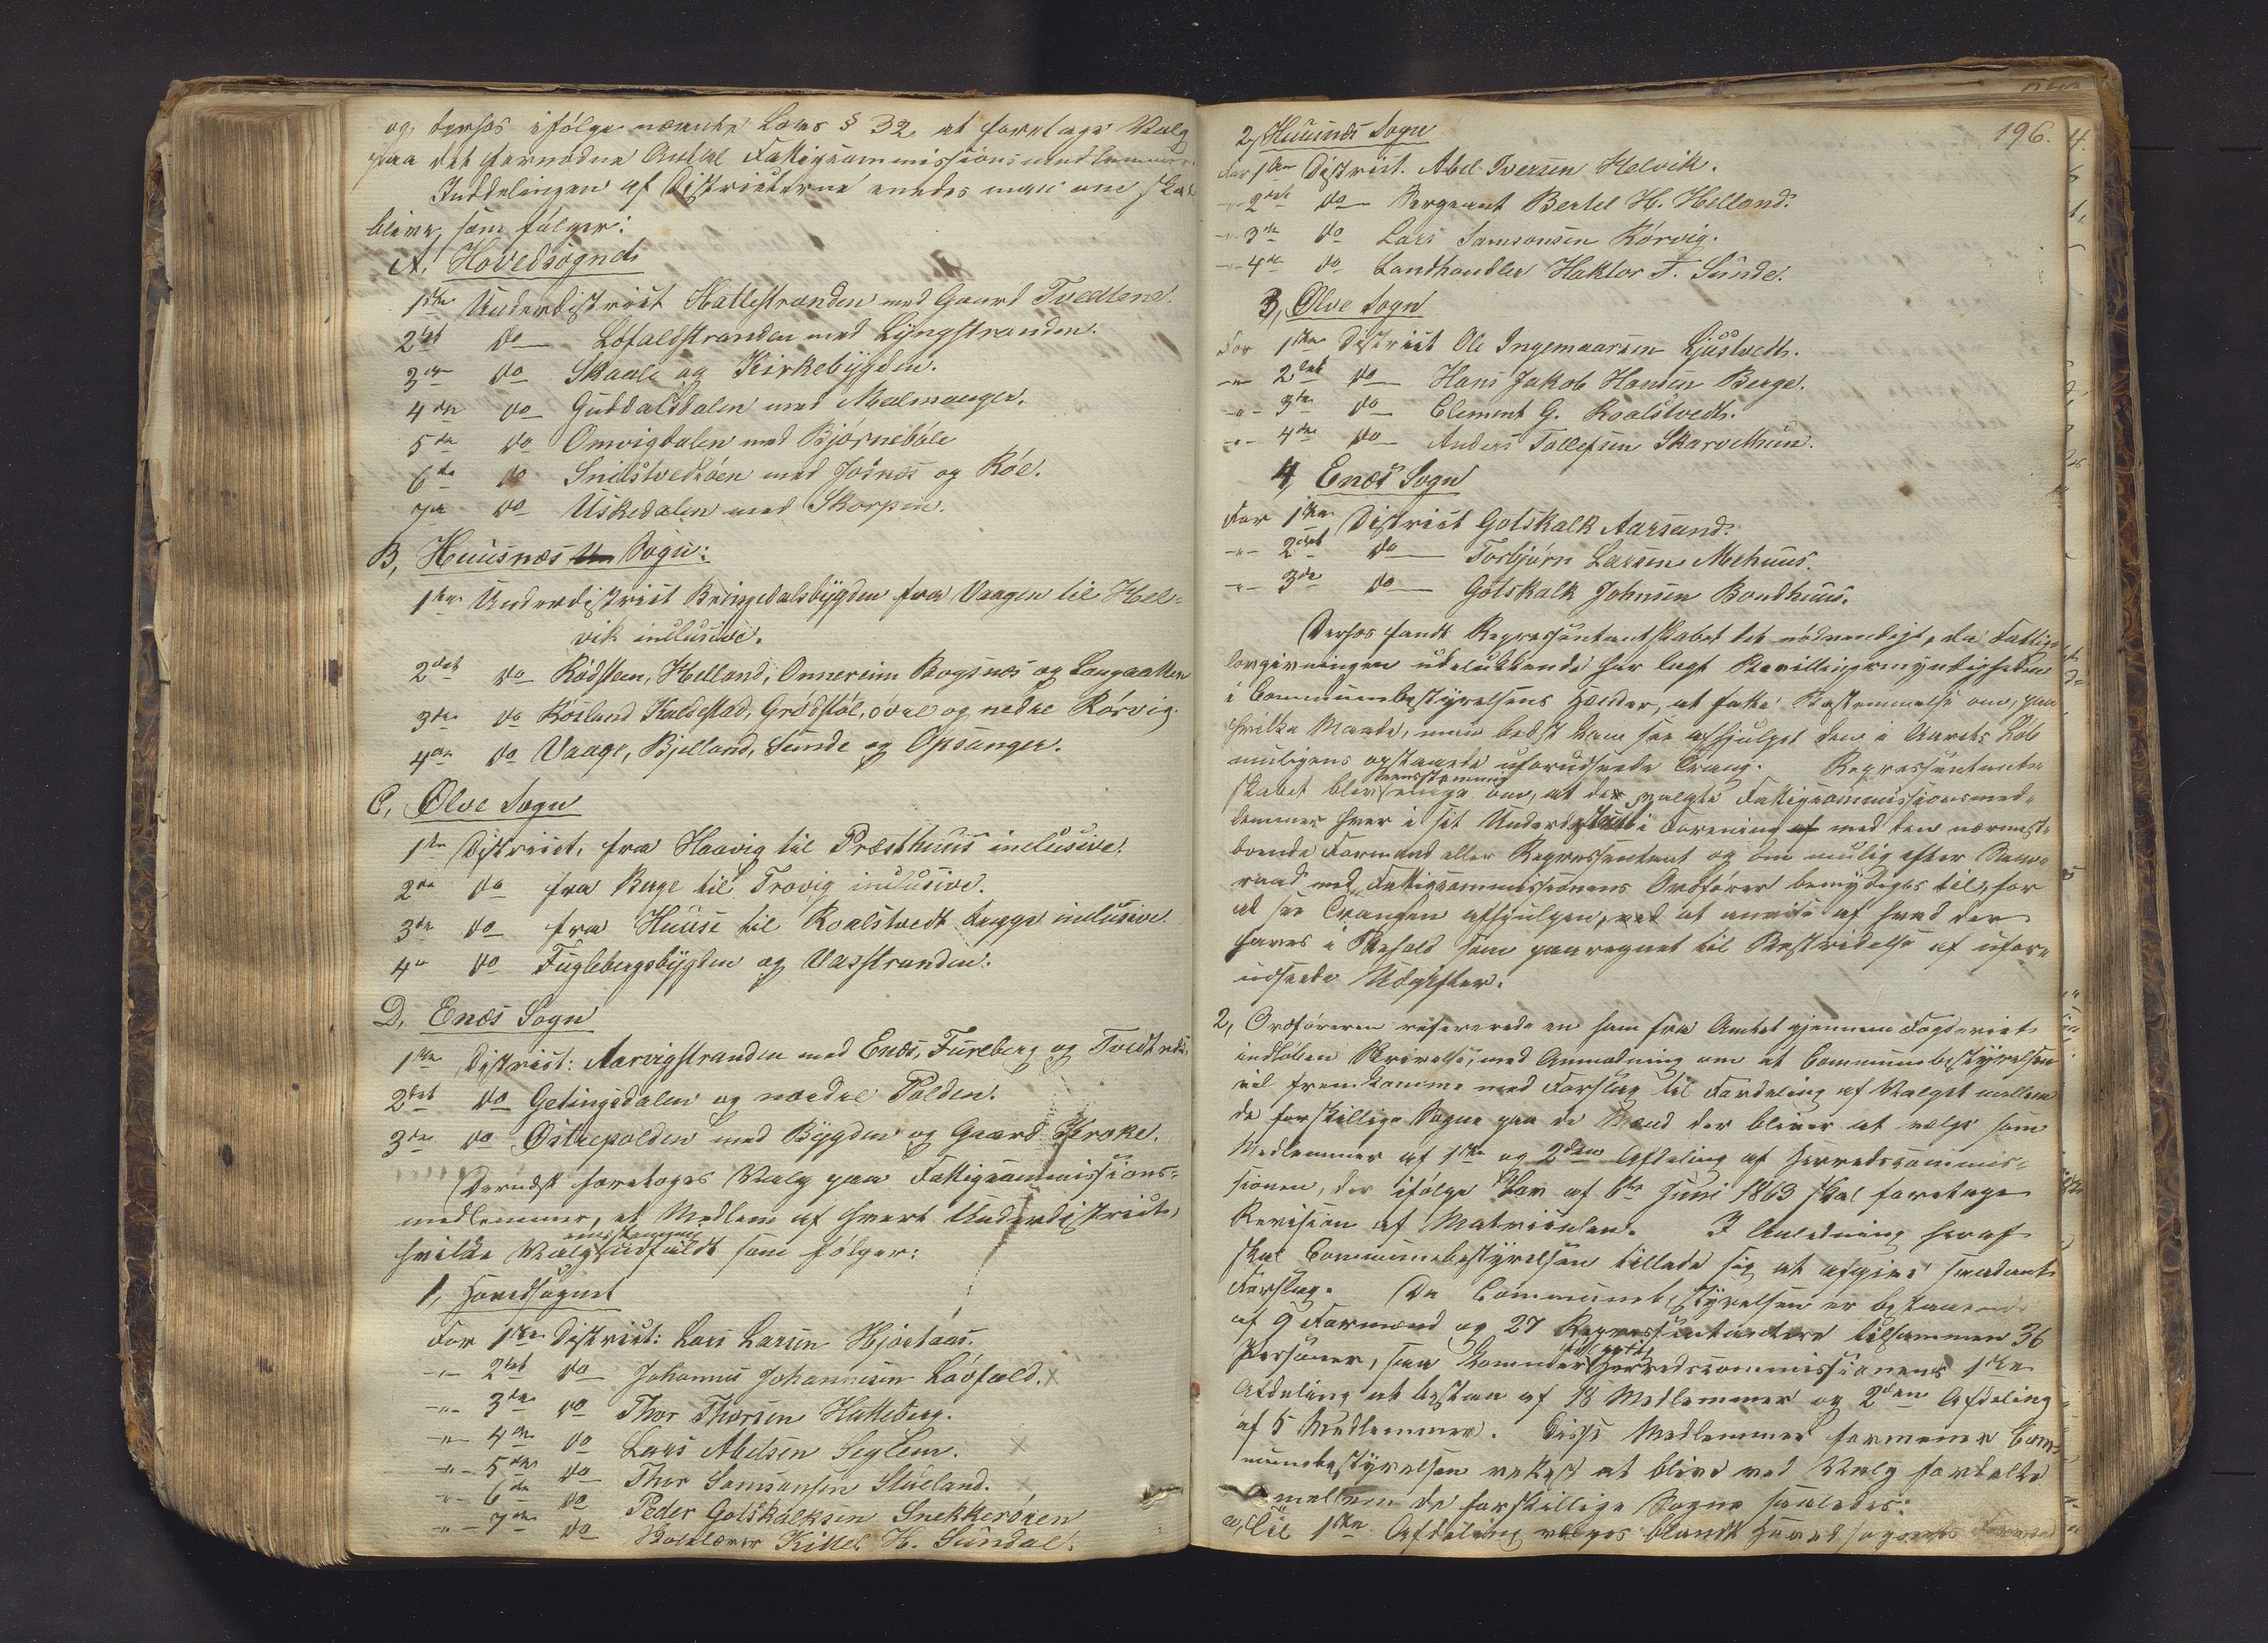 og derhos ifølge nævnte Lovs § 32 at foretage Valg
paa det fornødne Antal Fattigcommissionsmedlemmer.
Inddelingen af Districterne enedes man om skal
blive som følger:
A, Hovedsognet
1ste Underdistrict Hattestranden med Gaard Tvedtene.
2det do Løfaldstranden med Lyngstranden.
3die do Skaale og Kirkebygden.
4de do Guddalsdalen med Malmanger.
5te do Omvigdalen med Bjørnebøle
6te do Snilstvedtøen med Josnæs og Røe.
7de do Uskedalen med Skorpen.
B, Huusnæs Sogn:
1ste Underdistrict Bringedalsbygden fra Vaagen til Hel-
vik inclusive.
2det do Rødsteen, Helland, Onnereim Bogsnæs og Langaaker
3die do Røsland Kaldestad, Grødstøl, øvre og nedre Rørvig.
4de do Vaage, Bjelland, Sunde og Opsanger.
C, Ølve Sogn
1te District, fra Haavig til Præsthuus inclusive.
2de do fra Berge til Trovig inclusive.
3die do fra Huuse til Roalstvedt begge inclusive
4de do Fuglebergsbygden og Vasstranden.
D, Enæs Sogn
1ste District: Aarvigstranden med Enæs, Fureberg og Tvedtnæs.
2det do Getingsdalen og nordre Polden.
3die do Østrepolden med Bygden og Gaard Kroke.
Dernæst foretoges Valg paa Fattigcommissions-
medlemmer, et Medlem af hvert Underdistrict,
hvilke Valg eenstemmig udfaldt som følger:
1, Hovedsognet
For 1ste District: Lars Larsen Hjortaas.
-"- 2det do Johannes Johannesen Løvfald. x
-"- 3die do Thor Thorsen Hatteberg.
-"- 4de do Lars Abelsen Seglem. x
-"- 5te do Thor Samsonsen Stueland. x
-"- 6te do Peder Gotskalksen Snekkerøen
-"- 7de do Skolelærer Kittel H. Sundal.
196.
2, Huusnæs Sogn
For 1ste District. Abel Iversen Helvik.
-"- 2det do Sergeant Bertel H. Helland.
-"- 3die do Lars Samsonsen Rørvig.
-"- 4de do Landhandler Haktor T. Sunde.
3, Ølve Sogn
For 1ste District Ole Ingemaarsen Ljustvedt.
-"- 2det do Hans Jakob Hansen Berge.
-"- 3die do Clement G. Roalstvedt.
-"- 4de do Anders Tollefsen Skarvethun.
4, Enæs Sogn
For 1ste District Gotskalk Aarsand.
-"- 2det do Torbjørn Larsen Mehuus.
-"- 3die do Gotskalk Johnsen Bondhuus.
Derhos fandt Repræsentantskabet det nødvendigt, da Fattig-
lovgivningen udelukkende har lagt Bevillingsmyndigheden
i Communebestyrelsens Hænder, at fatte Bestemmelse om, paa
hvilke Maade, man bedst kan see afhjulpet den i Aarets Løb
muligens opstaaede uforudseede Trang. Repræsentant-
skabet blev eensstemmig enige om, at de valgte Fattigcommissionsmed-
lemmer hver i sit Underdistrict i Forening af med den nærmest-
boende Formand eller Repræsentant og om mulig efter Sam-
raad med Fattigcommissionens Ordfører bemyndiges til, for
at see Trangen afhjulpen, ved at anvise af hvad der
haves i Behold som paaregnet til Bestridelse af ufor-
udseede Udgifter.
2, Ordføreren refererede en ham fra Amtet gjennem Fogderiet
indløben Skrivelse, med Anmodning om at Communebestyrelsen
vil fremkomme med Forslag til Fordeling af Valget mellem
de forskjellige Sogne paa de Mænd der bliver at vælge som
Medlemmer af 1ste og 2den Afdeling af Herredscommis-
sionen, der ifølge Lov af 6te Juni 1863 skal foretage
Revision af Matriculen. I Anledning heraf
skal Communebestyrelsen tillade sig at afgive saadant
Forslag. Da Communebestyrelsen er bestaaende
af 9 Formænd og 27 Repræsentantere tilsammen 36
Personer, saa kommer Herredscommissionens 1ste
Afdeling at bestaa af 18 Medlemmer og 2den Afdeling
af 5 Medlemmer. Disse Medlemmer formener Com-
munebestyrelsen rettest at blive ved Valg fordelte
mellem de forskjellige Sogne saaledes:
a, Til 1ste Afdeling vælges blandt Hovedsognets Formænd